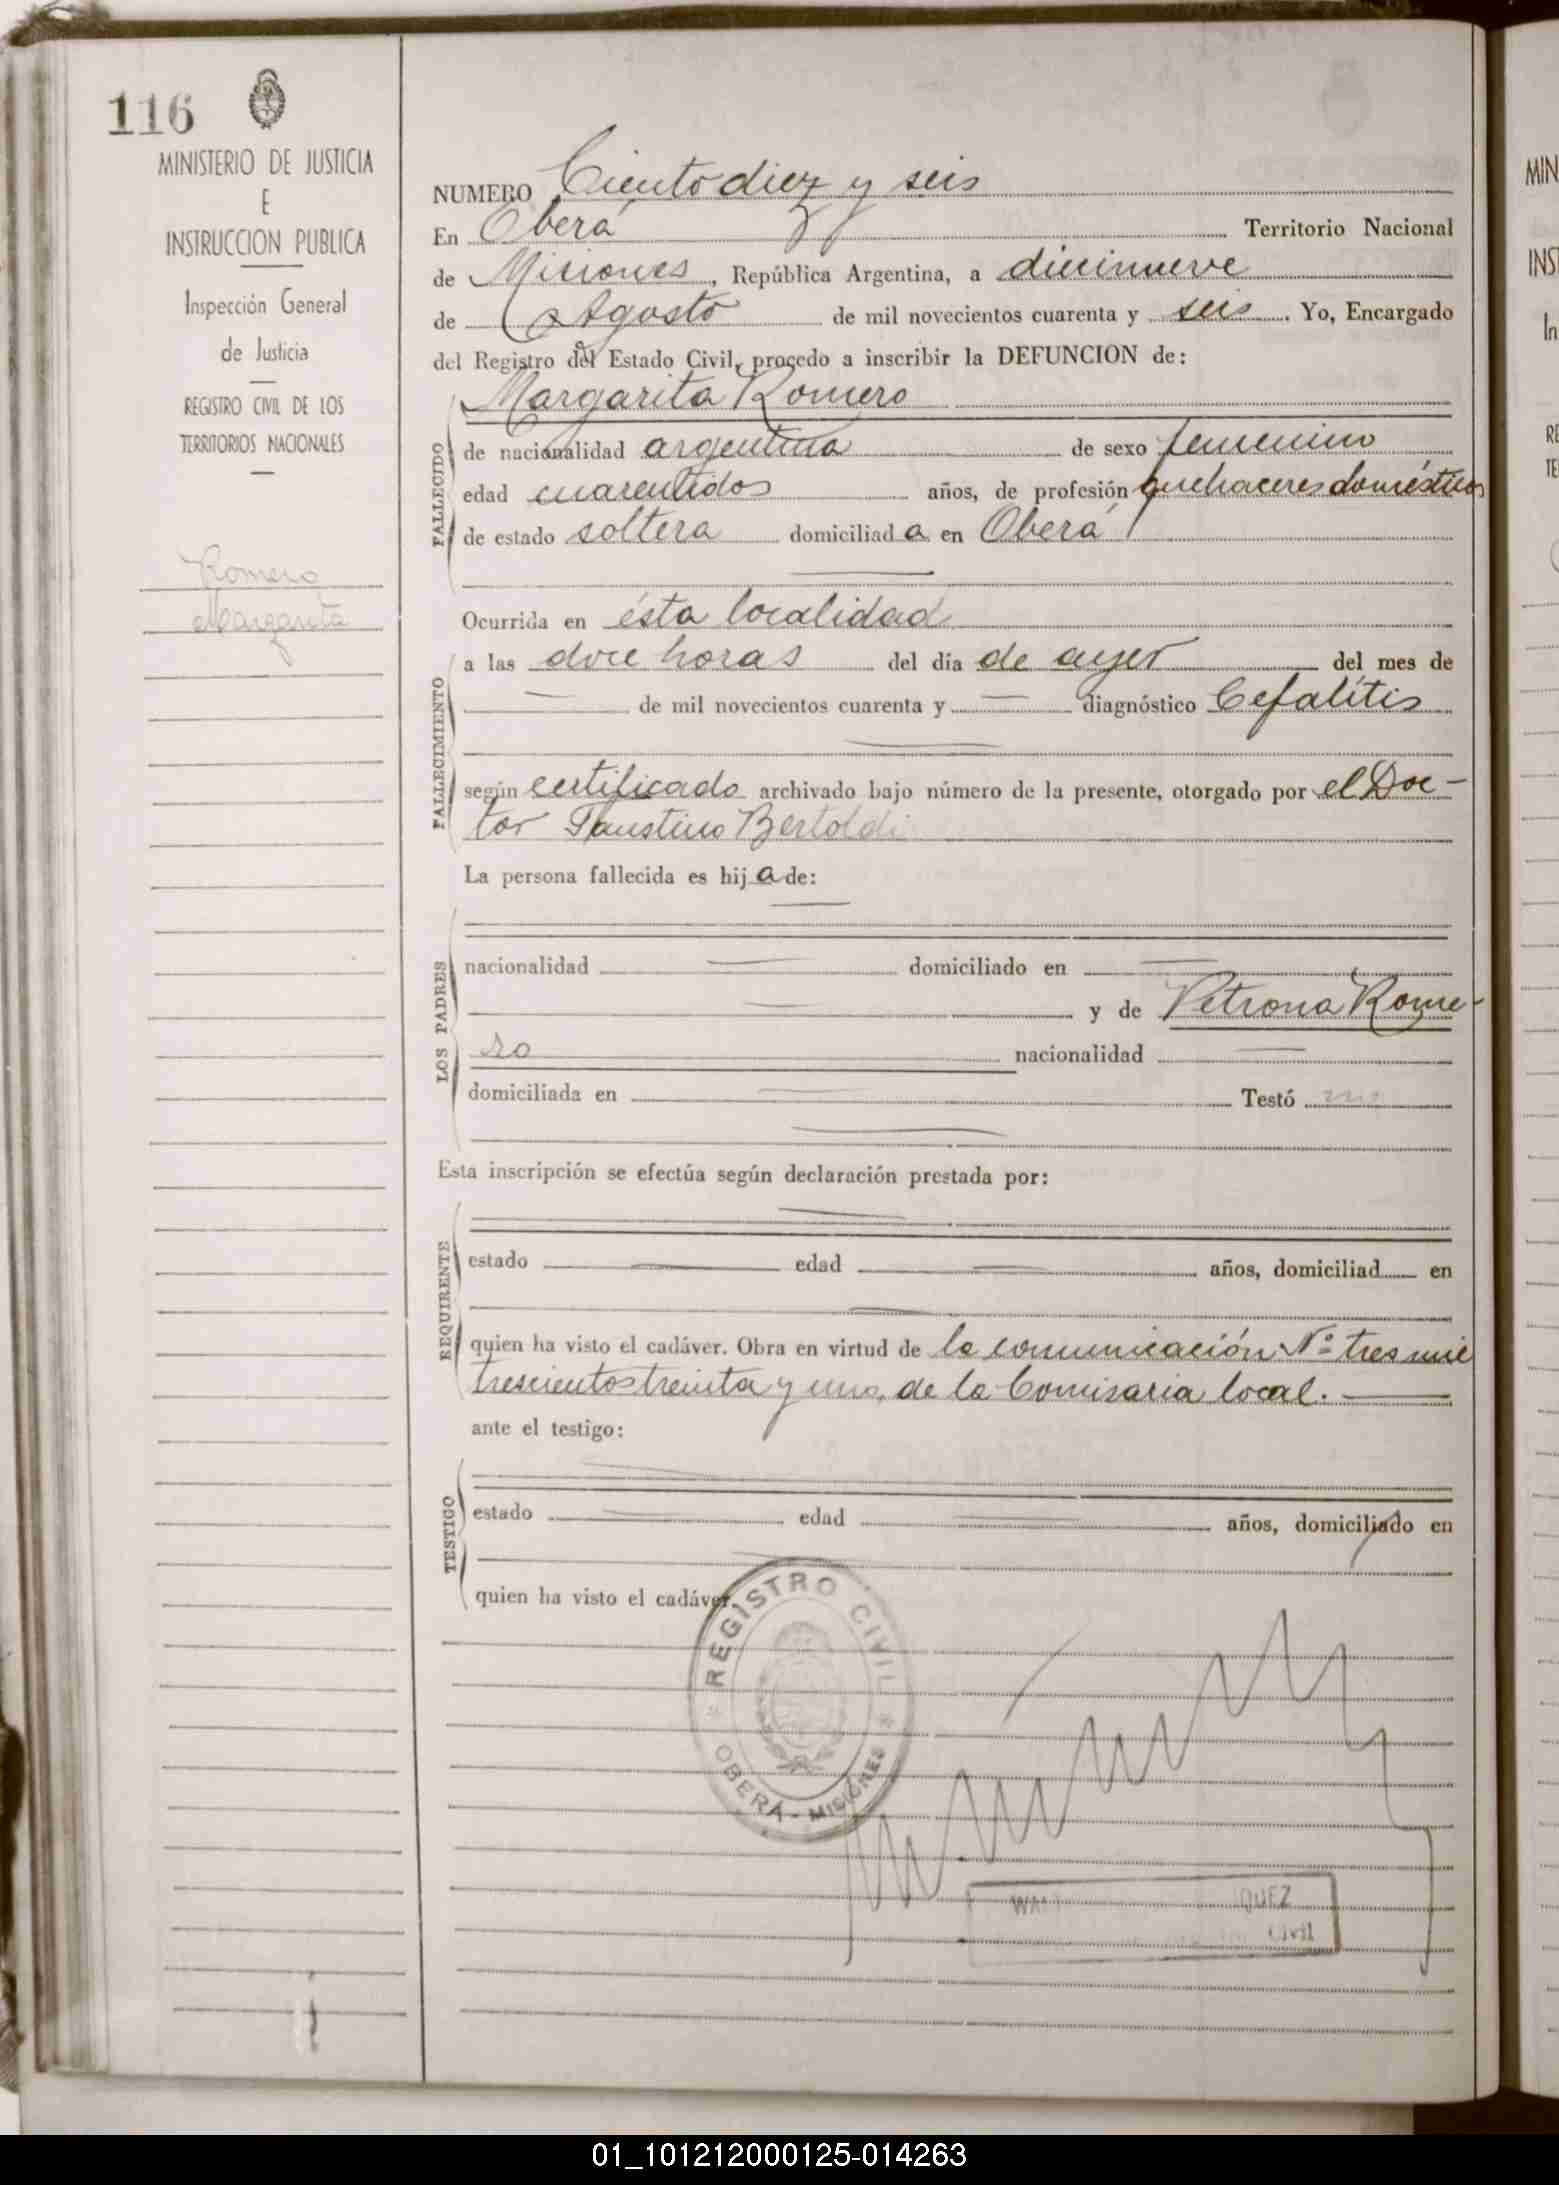 116
MINISTERIO DE JUSTICIA
E
INSTRUCCION PUBLICA
Inspección General
de Justicia
REGISTRO CIVIL DE LOS
TERRITORIOS NACIONALES
Romero
Margarita
NUMERO Ciento diez y seis
En Oberá Territorio Nacional
de Misiones, República Argentina, a diecinueve
de Agosto de mil novecientos cuarenta y seis. Yo, Encargado
del Registro del Estado Civil, procedo a inscribir la DEFUNCION de:
Margarita Romero
FALLECIDO
de nacionalidad argentina de sexo femenino
edad cuarentidos años, de profesión quehaceres domésticos
de estado soltera domiciliada en Oberá
FALLECIMIENTO
Ocurrida en ésta localidad
a las doce horas del día de ayer del mes de
de mil novecientos cuarenta y diagnóstico Cefalitis
según certificado archivado bajo número de la presente, otorgado por el Doc-
tor Faustino Bertoldi
La persona fallecida es hija de:
LOS PADRES
nacionalidad domiciliado en
y de Petrona Rome-
ro nacionalidad
domiciliada en Testó no
Esta inscripción se efectúa según declaración prestada por:
REQUIRENTE
estado edad años, domiciliad en
quien ha visto el cadáver. Obra en virtud de la comunicación Nº tres mil
trescientos treinta y uno, de la Comisaria local.
ante el testigo:
TESTIGO
estado edad años, domiciliado en
quien ha visto el cadáver.
REGISTRO CIVIL
OBERÁ - MISIONES
Civil
01_101212000125-014263